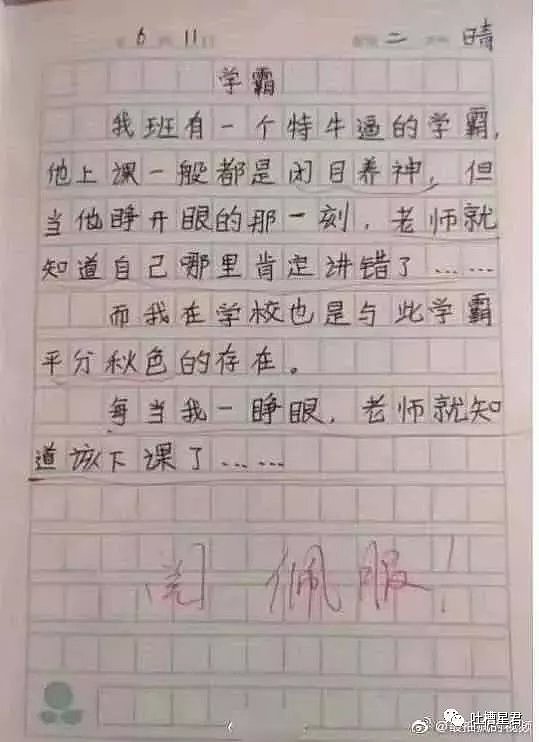 6 11 二 晴
学霸
我班有一个特牛逼的学霸,
他上课一般都是闭目养神,但
当他睁开眼的那一刻,老师就
知道自己哪里肯定讲错了……
而我在学校也是与此学霸
平分秋色的存在。
每当我一睁眼,老师就知
道该下课了……
阅 佩服!
吐槽星君